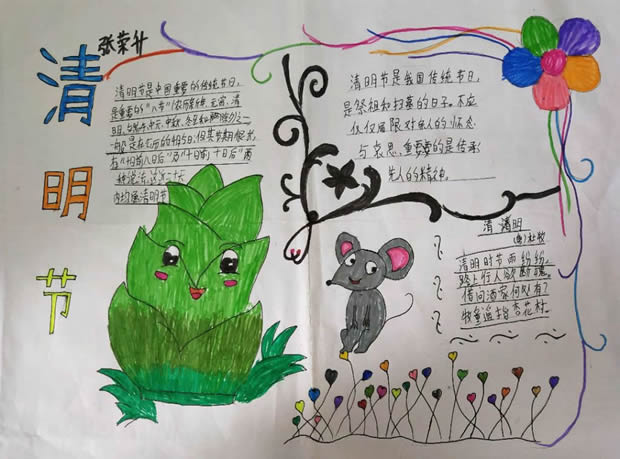 清
明
节
张荣升
清明节是中国重要的传统节日,
是重要的"八节"(农历除夕、元宵、清
明、端午、中元、中秋、冬至和)之一
一般是在公历的4月5号,但其节期很长,
有"十日前八日后"及"十日前十日后"两
种说法,这近二十天
内均属清明节
清明节是我国传统节日,
是祭祖和扫墓的日子。不应
仅仅局限对人的怀念
与哀思,重要的是传承
先人的精神。
清明
杜牧
清明时节雨纷纷,
路上行人欲断魂。
借问酒家何处有?
牧童遥指杏花村.